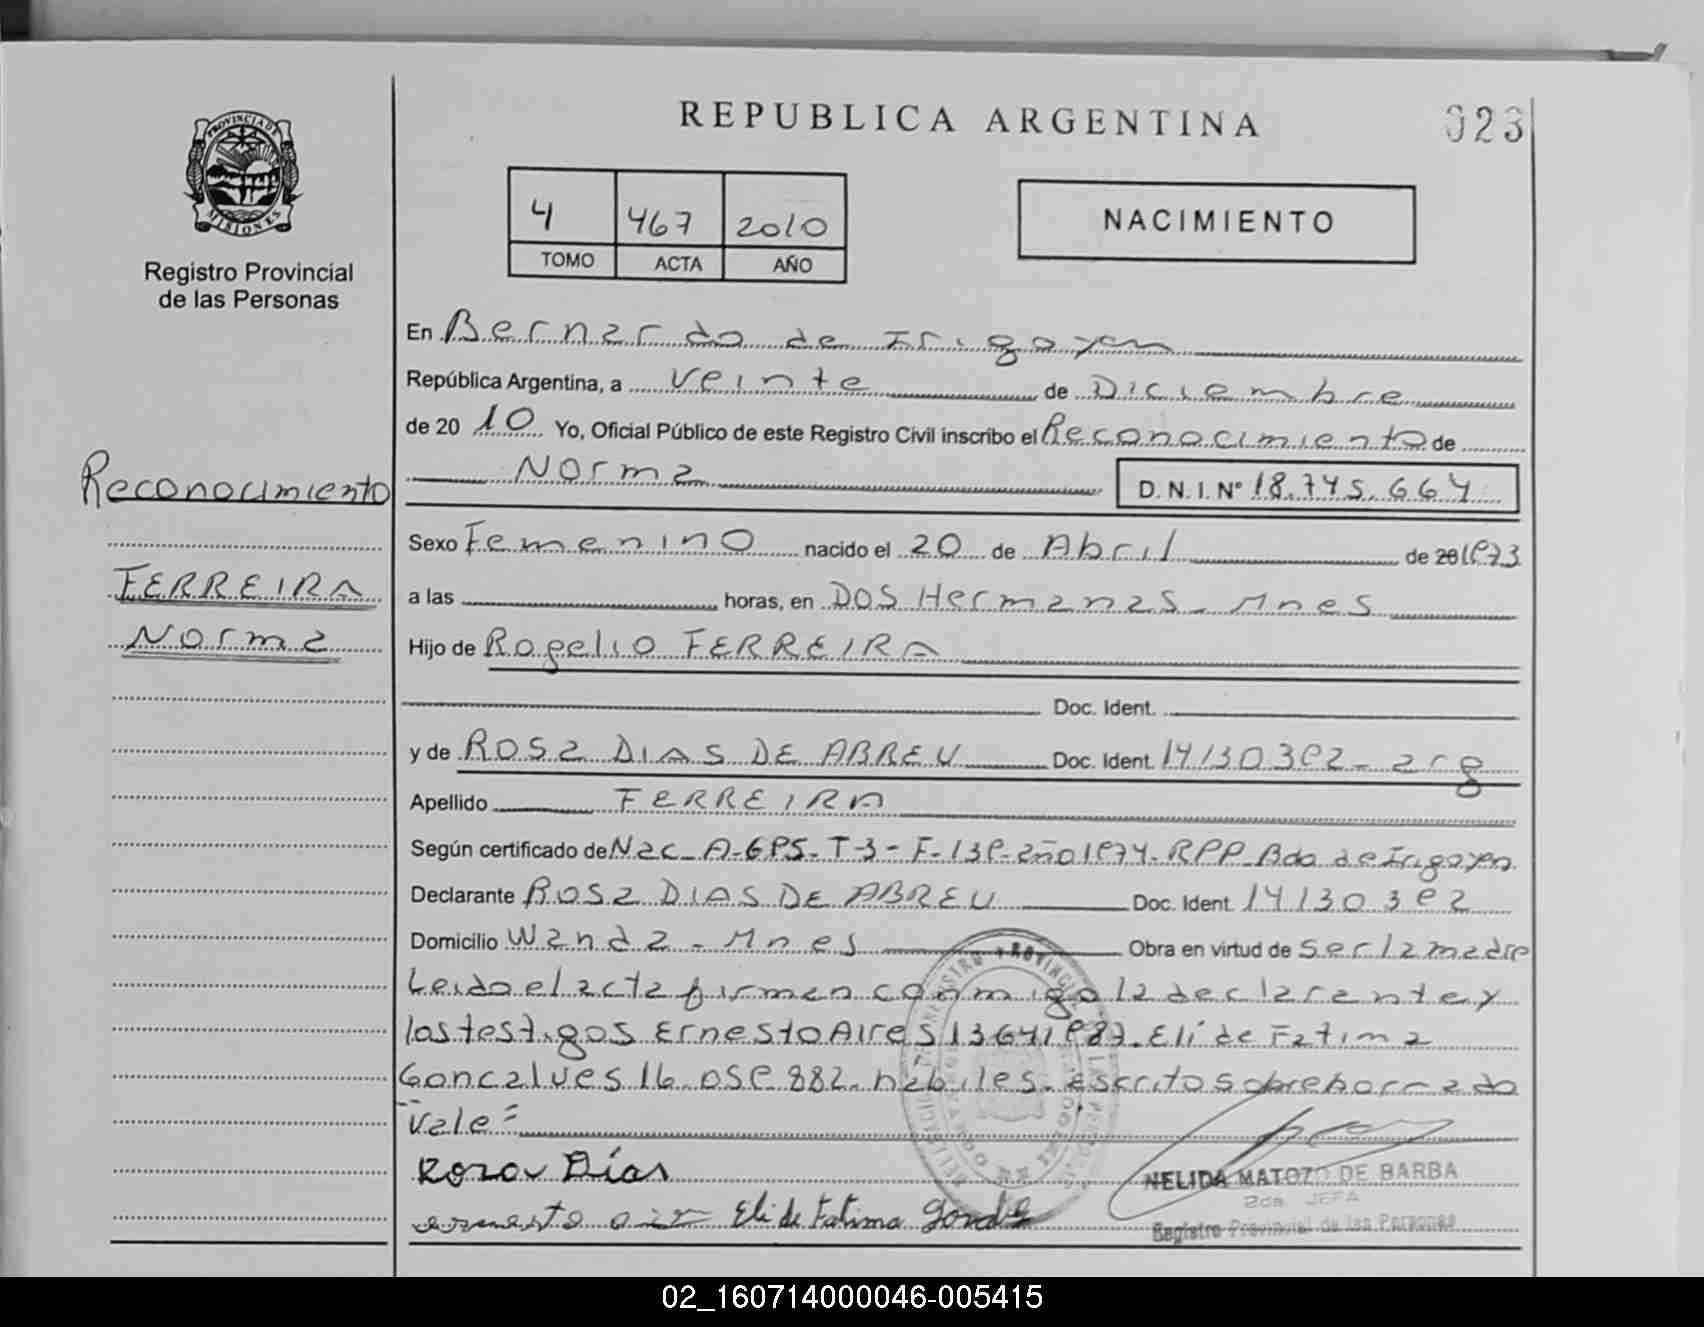 REPUBLICA ARGENTINA
023
PROVINCIA DE MISIONES
Registro Provincial
de las Personas
4 467 2010
TOMO ACTA AÑO
NACIMIENTO
En Bernardo de Irigoyen
República Argentina, a veinte de Diciembre
de 20 10 Yo, Oficial Público de este Registro Civil inscribo el Reconocimiento de
Norma D.N.I. Nº 18.745.664
Reconocimiento
FERREIRA
Norma
Sexo Femenino nacido el 20 de Abril de 20 1973
a las horas, en DOS Hermanas - Mnes
Hijo de Rogelio FERREIRA
Doc. Ident.
y de ROSa DIAS DE ABREU Doc. Ident. 14130392 - arg
Apellido FERREIRA
Según certificado de Nac - A-695 - T-3 - F-139 - año 1974 - RPP - Bdo de Irigoyen
Declarante ROSa DIAS DE ABREU Doc. Ident. 14130392
Domicilio Wanda - Mnes Obra en virtud de Ser la madre
Leido el acta firman conmigo la declarante y
los testigos Ernesto Aires 13641987 - Eli de Fatima
Goncalves 16.059.882 - habiles - Escrito sobre borrado
Vale =
Rosa Días
ernesto Eli de Fatima
NELIDA MATOZO DE BARBA
2da JEFA
Registro Provincial de las Personas
02_160714000046-005415